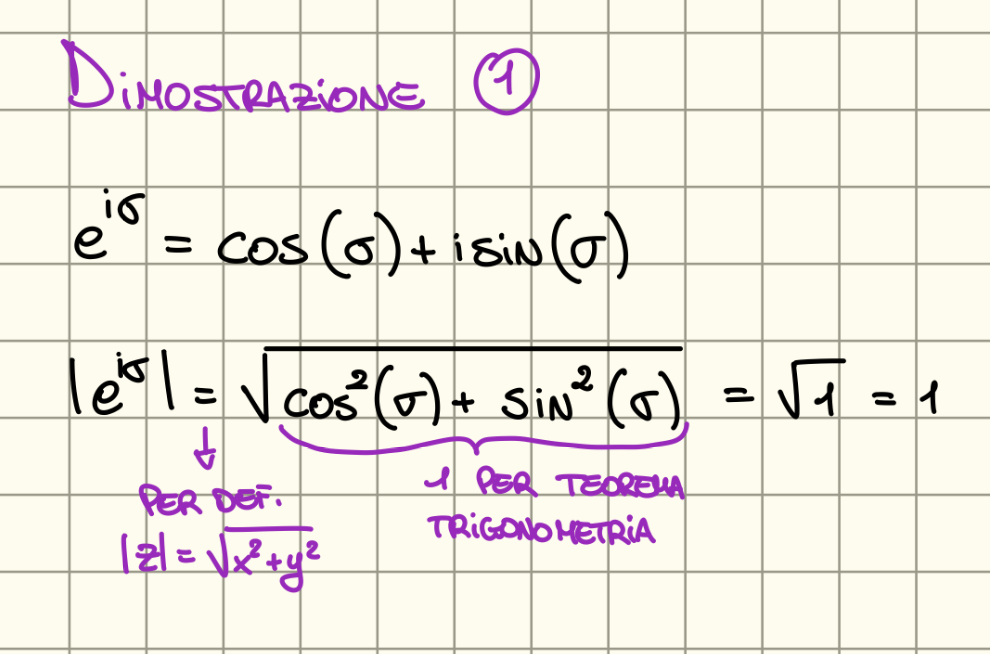 DIMOSTRAZIONE ①
e^{iσ} = cos(σ) + i sin(σ)
|e^{iσ}| = √(cos²(σ) + sin²(σ)) = √1 = 1
↓
PER DEF.
|z| = √(x²+y²)
1 PER TEOREMA
TRIGONOMETRIA